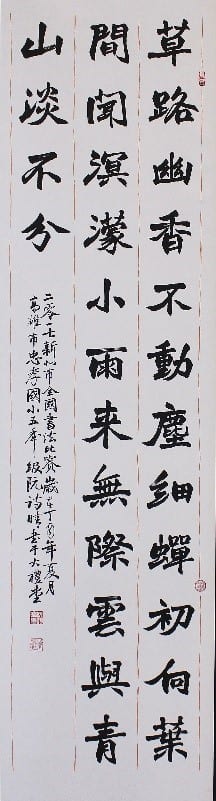 草路幽香不動塵細蟬初向葉
間聞溟濛小雨来無際雲與青
山淡不分
二零一七新北市全國書法比賽歲在丁酉年夏月
高雄市忠孝國小五年級阮詩晴書于大禮堂